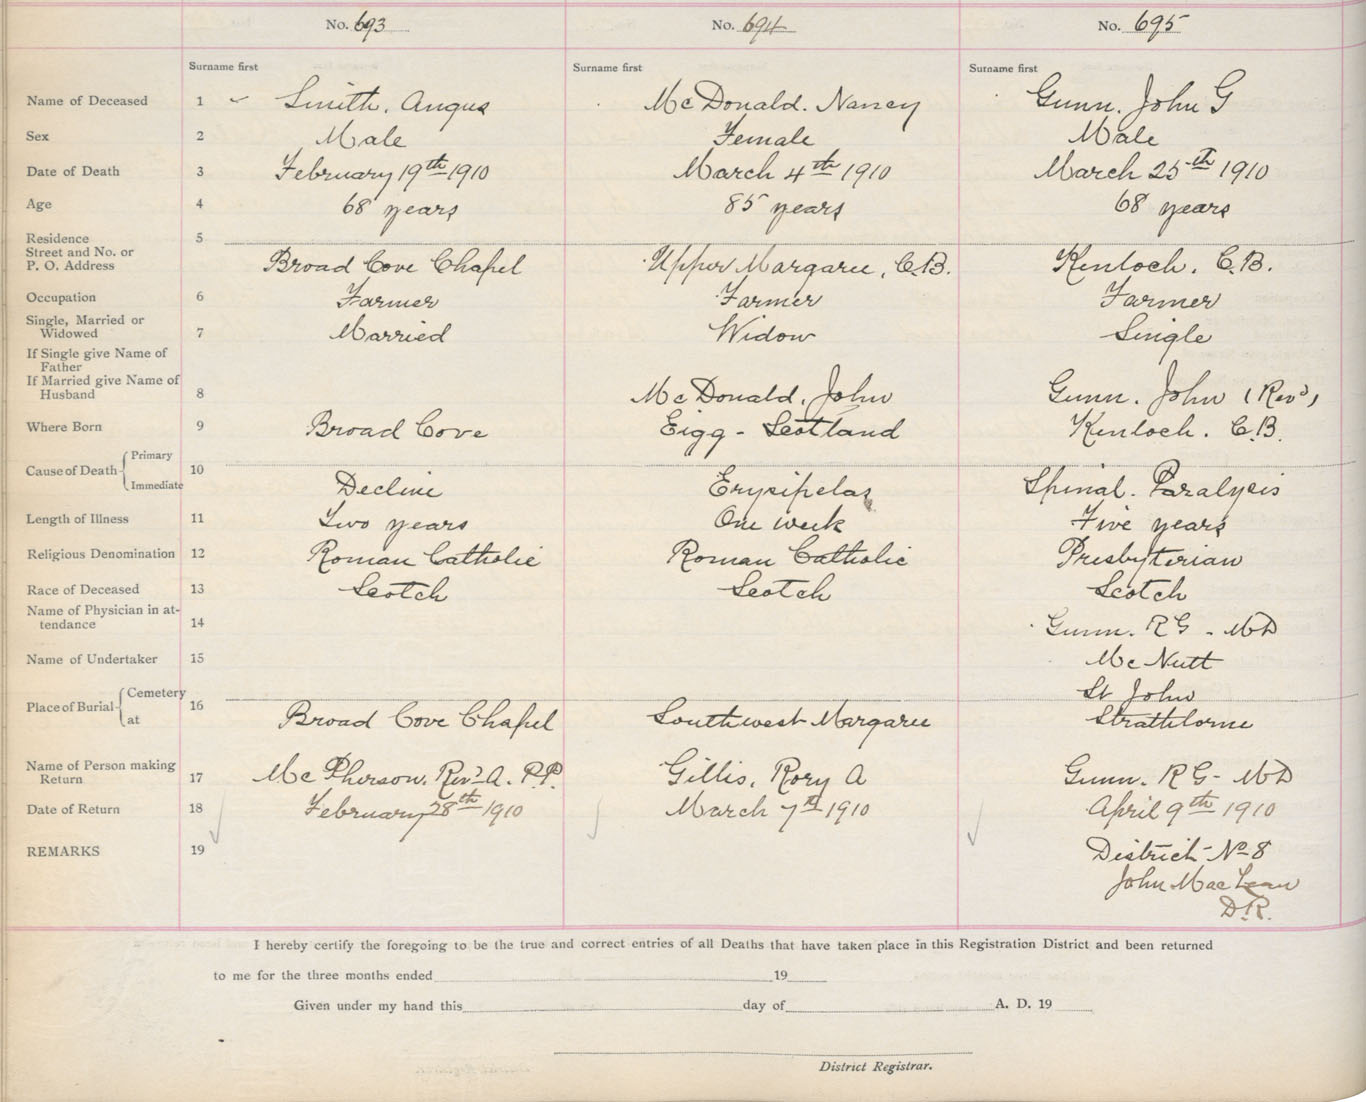 No. 693 No. 694 No. 695
Surname first Surname first Surname first
Name of Deceased 1 Smith, Angus McDonald. Nancy Gunn. John G
Sex 2 Male Female Male
Date of Death 3 February 19th 1910 March 4th 1910 March 25th 1910
Age 4 68 years 85 years 68 years
Residence 5
Street and No. or
P. O. Address Broad Cove Chapel Upper Margaree, C.B. Kenloch. C.B.
Occupation 6 Farmer Farmer Farmer
Single, Married or
Widowed 7 Married Widow Single
If Single give Name of
Father
If Married give Name of
Husband 8 McDonald, John Gunn. John (Revd)
Where Born 9 Broad Cove Eigg - Scotland Kenloch. C.B.
Cause of Death { Primary 10
Immediate Decline Erysipelas Spinal. Paralysis
Length of Illness 11 Two years One week Five years
Religious Denomination 12 Roman Catholic Roman Catholic Presbyterian
Race of Deceased 13 Scotch Scotch Scotch
Name of Physician in at-
tendance 14 Gunn. RG - MD
Name of Undertaker 15 McNutt
Place of Burial { Cemetery 16 St John
at Broad Cove Chapel Southwest Margaree Strathlorne
Name of Person making
Return 17 McPherson, Revd A. P.P. Gillis, Rory A Gunn. RG - MD
Date of Return 18 February 28th 1910 March 7th 1910 April 9th 1910
REMARKS 19 District No 8
John MacLean
D.R.
I hereby certify the foregoing to be the true and correct entries of all Deaths that have taken place in this Registration District and been returned
to me for the three months ended 19
Given under my hand this day of A. D. 19
District Registrar.